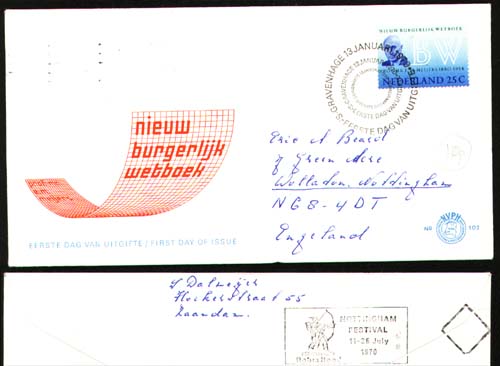 NIEUW BURGERLIJK WETBOEK
BW
NEDERLAND 25C
'S-GRAVENHAGE 13 JANUARI 1970
EERSTE DAG VAN UITGIFTE
nieuw
burgerlijk
wetboek
Eric A Beard
7 Green Acre
Wollaton, Nottingham
NG8-4DT
Engeland
NVPH
No 103
EERSTE DAG VAN UITGIFTE / FIRST DAY OF ISSUE
Dalmeijer
55
Zaandam.
NOTTINGHAM
FESTIVAL
11-26 July
1970